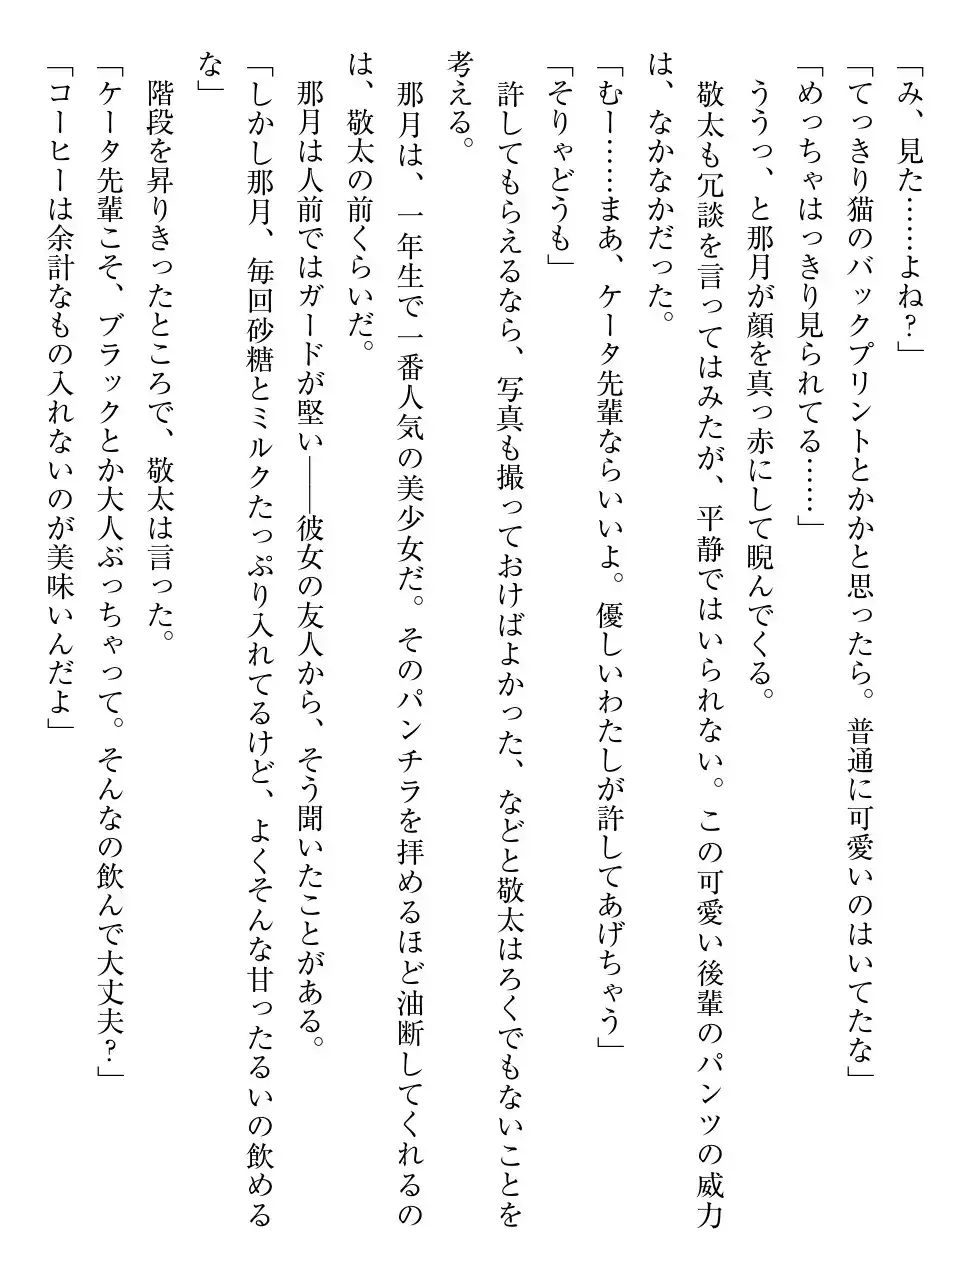 「み、見た……よね?」
「てっきり猫のバックプリントとかかと思ったら。普通に可愛いのはいてたな」
「めっちゃはっきり見られてる……」
ううっ、と那月が顔を真っ赤にして睨んでくる。
敬太も冗談を言ってはみたが、平静ではいられない。この可愛い後輩のパンツの威力
は、なかなかだった。
「むー……まあ、ケータ先輩ならいいよ。優しいわたしが許してあげちゃう」
「そりゃどうも」
許してもらえるなら、写真も撮っておけばよかった、などと敬太はろくでもないことを
考える。
那月は、一年生で一番人気の美少女だ。そのパンチラを拝めるほど油断してくれるの
は、敬太の前くらいだ。
那月は人前ではガードが堅い――彼女の友人から、そう聞いたことがある。
「しかし那月、毎回砂糖とミルクたっぷり入れてるけど、よくそんな甘ったるいの飲める
な」
階段を昇りきったところで、敬太は言った。
「ケータ先輩こそ、ブラックとか大人ぶっちゃって。そんなの飲んで大丈夫?」
「コーヒーは余計なもの入れないのが美味いんだよ」